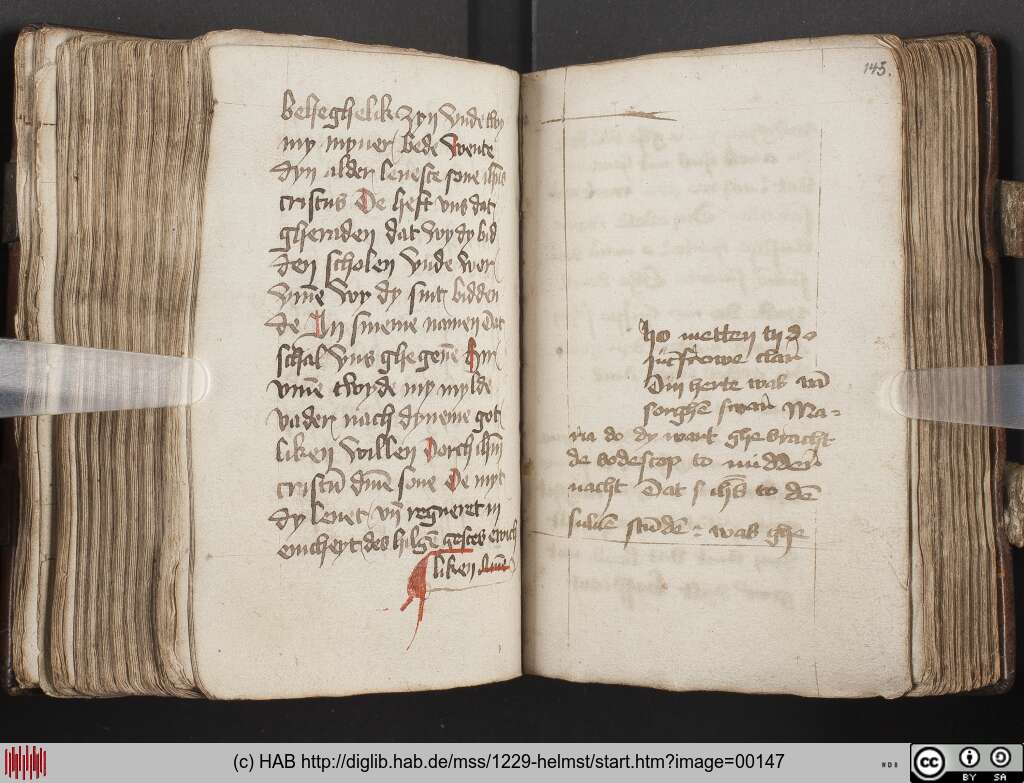 beheghelik zyn Vnde twy
my myner bede Wente
dyn alder leueste sone ihūs
cristus De heft vns dat
gheraden dat Wy dy bid
den scholen Vnde Wor
Vmē Wy dy sint bidden
de In sineme namen dat
schal Vns gheghenē
Vmē twyde my mylde
vader nach dyneme got
liken Willen Dorch ihm̄
cristū dinē sone De myt
dy leuet vn̄ regneret in
enicheyt des hilgē gestes ewich
liken Amē
145.
o metten tyde
Juncfrowe clar
Din herte was in
sorghē swar Ma-
ria do dy wart ghebracht
de bodescop to midder
nacht Dat ihs̄ to dē
suluē stūdē was ghe
(c) HAB http://diglib.hab.de/mss/1229-helmst/start.htm?image=00147
WDB
cc
BY SA